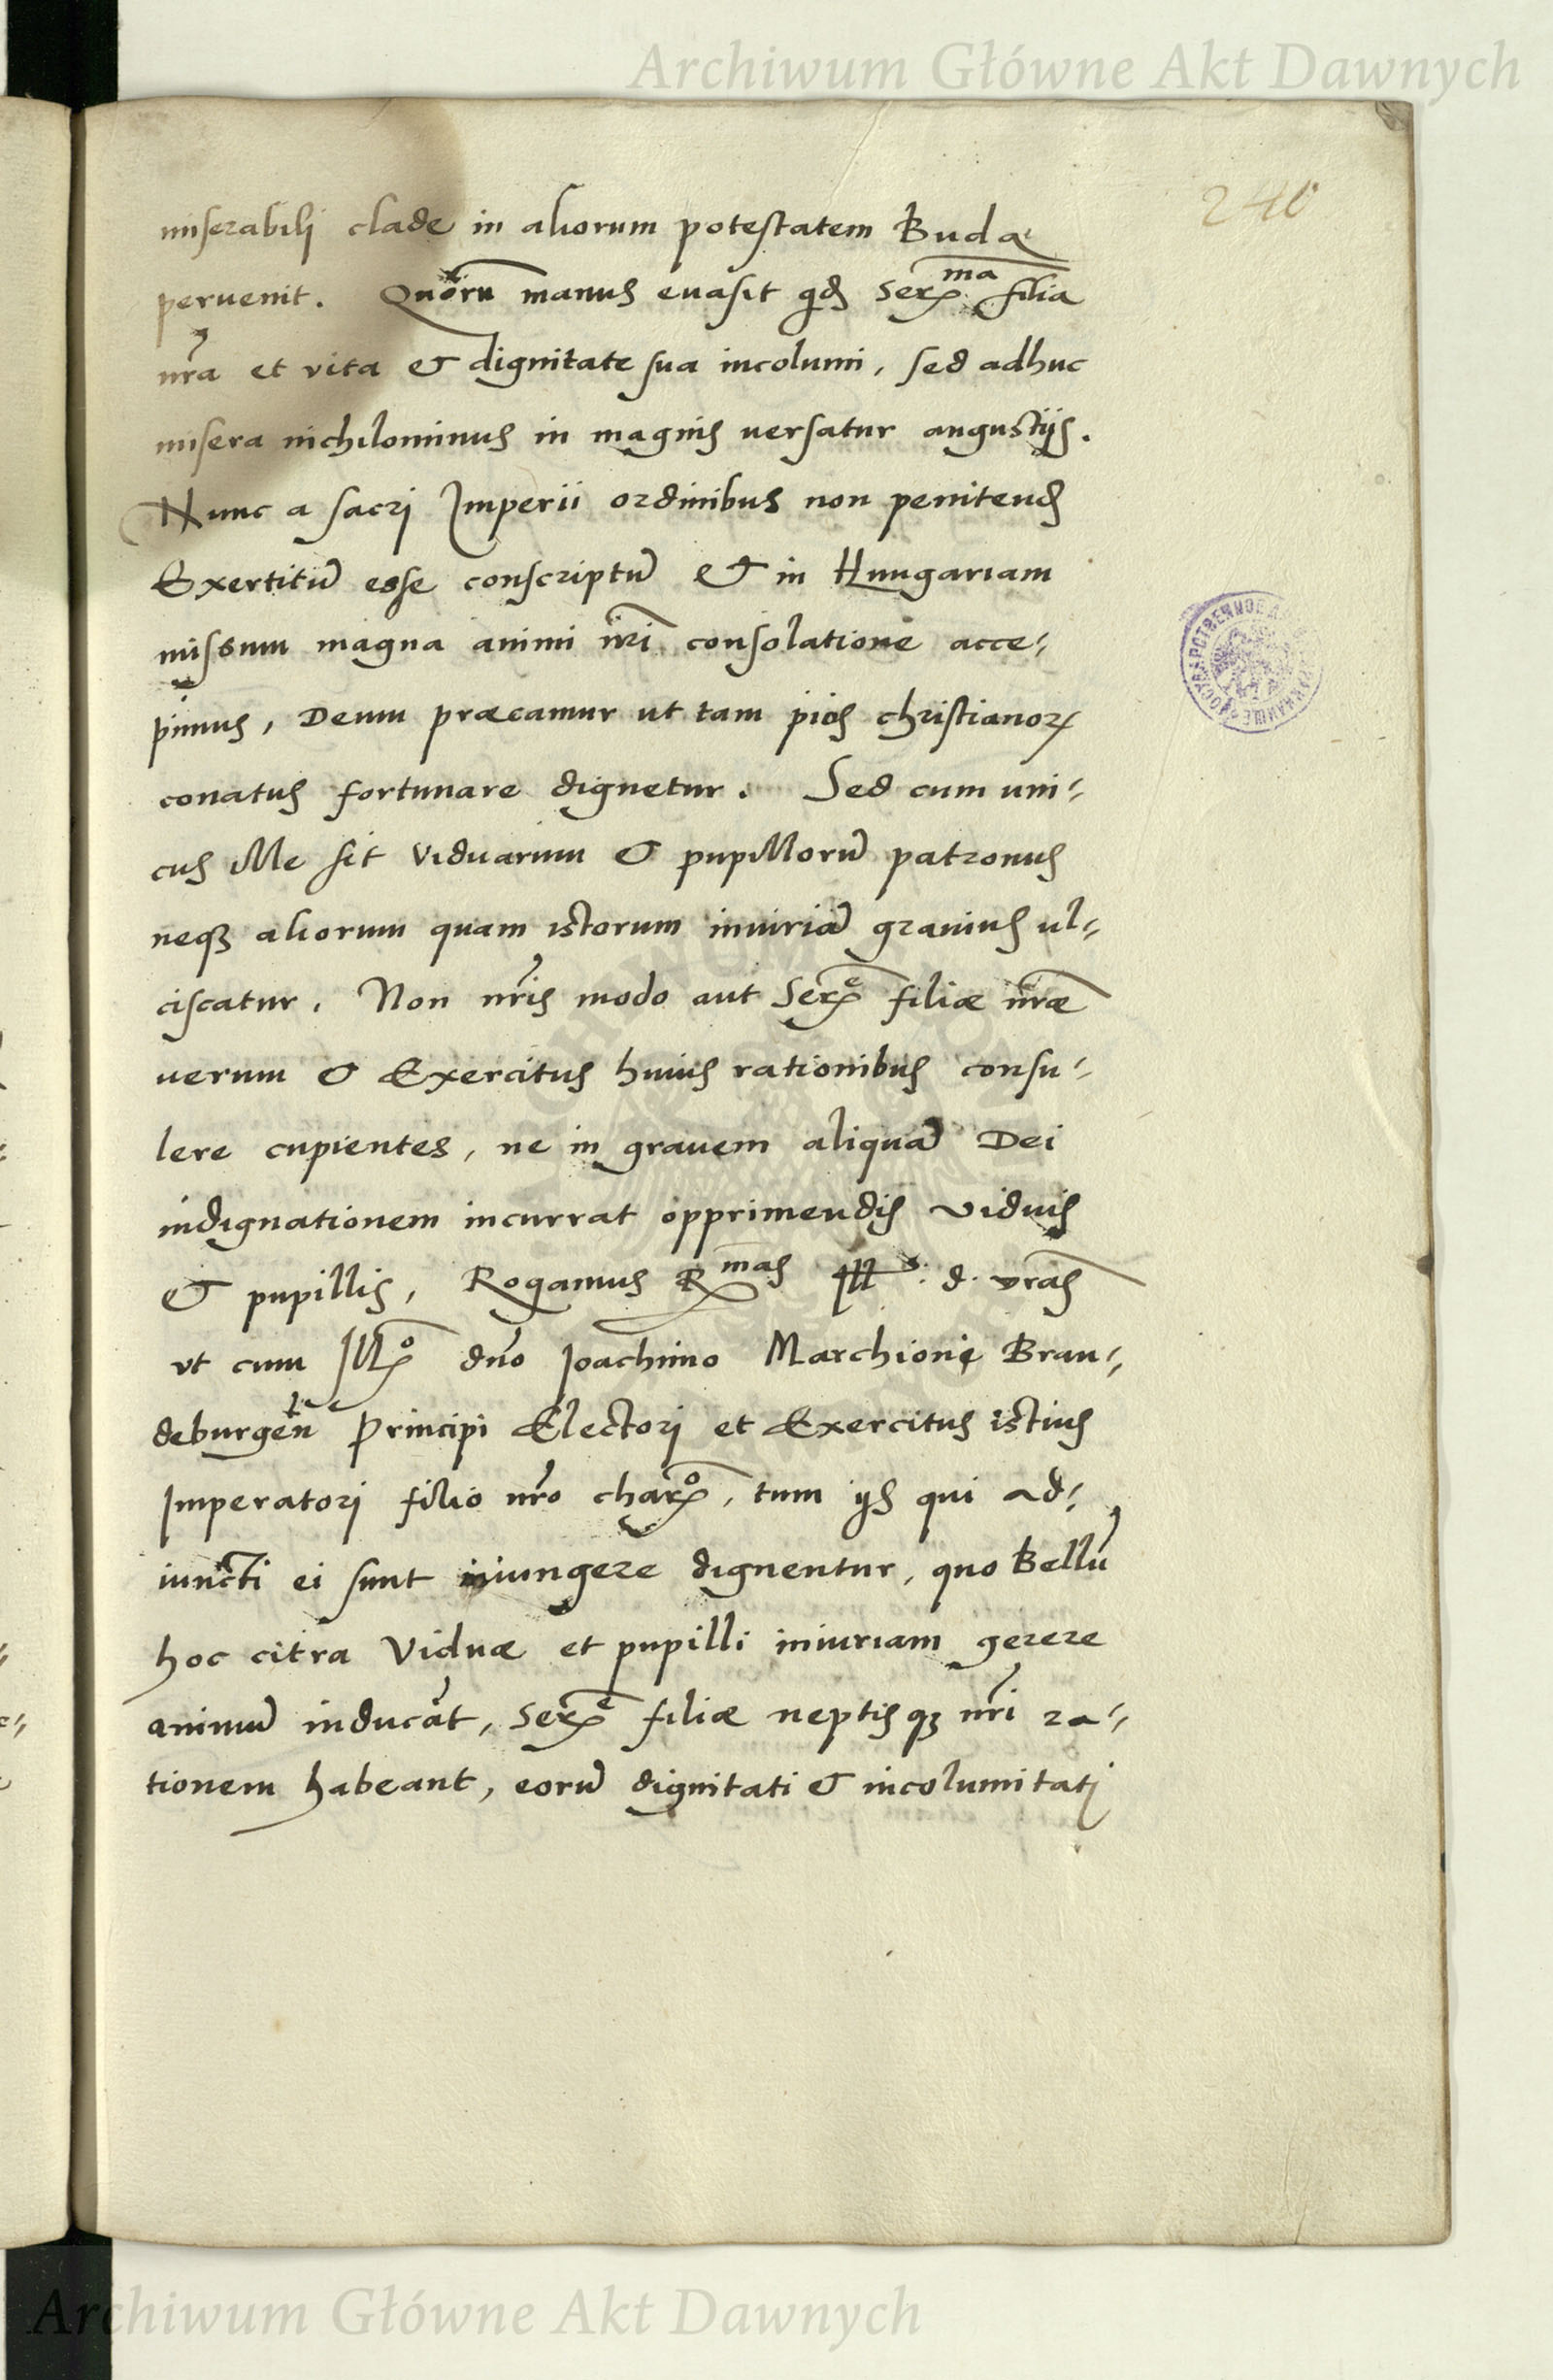 Archiwum Główne Akt Dawnych
240
miserabili clade in aliorum potestatem Buda
peruenit. Quorũ manus euasit qd Ser.ma filia
nr̃a et vita et dignitate sua incolumi, sed adhuc
misera nichilominus in magnis uersatur angustijs.
Nunc a sacri Imperii ordinibus non penitend
Exertitũ esse conscriptũ et in Hungariam
missum magna animi nr̃i consolatione acce-
pimus, Deum præcamur ut tam pios christianor
conatus fortunare dignetur. Sed cum uni-
cus ille sit viduarum et pupillorũ patronus
neqз aliorum quam istorum iniuriã grauius ul-
ciscatur. Non nr̃is modo aut Ser.e filiæ nr̃æ
uerum et Exercitus huius rationibus consu-
lere cupientes, ne in grauem aliquã Dei
indignationem incurrat opprimendis viduis
et pupillis, Rogamus R.mas Ill.s d. vr̃as
vt cum Ill.o dño Joachimo Marchioni Bran-
deburgeñ Principi Electori et Exercitus istius
Imperatori filio nr̃o char.o, tum ijs qui ad-
iuncti ei sunt iniungere dignentur, quo Bellũ
hoc citra Viduæ et pupilli iniuriam gerere
animũ inducãt, Ser.e filiæ neptisqз nr̃i ra-
tionem habeant, eorũ dignitati et incolumitati
Archiwum Główne Akt Dawnych